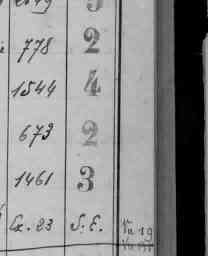 778 2
1544 4
673 2
1461 3
Ex. 23 S. E.